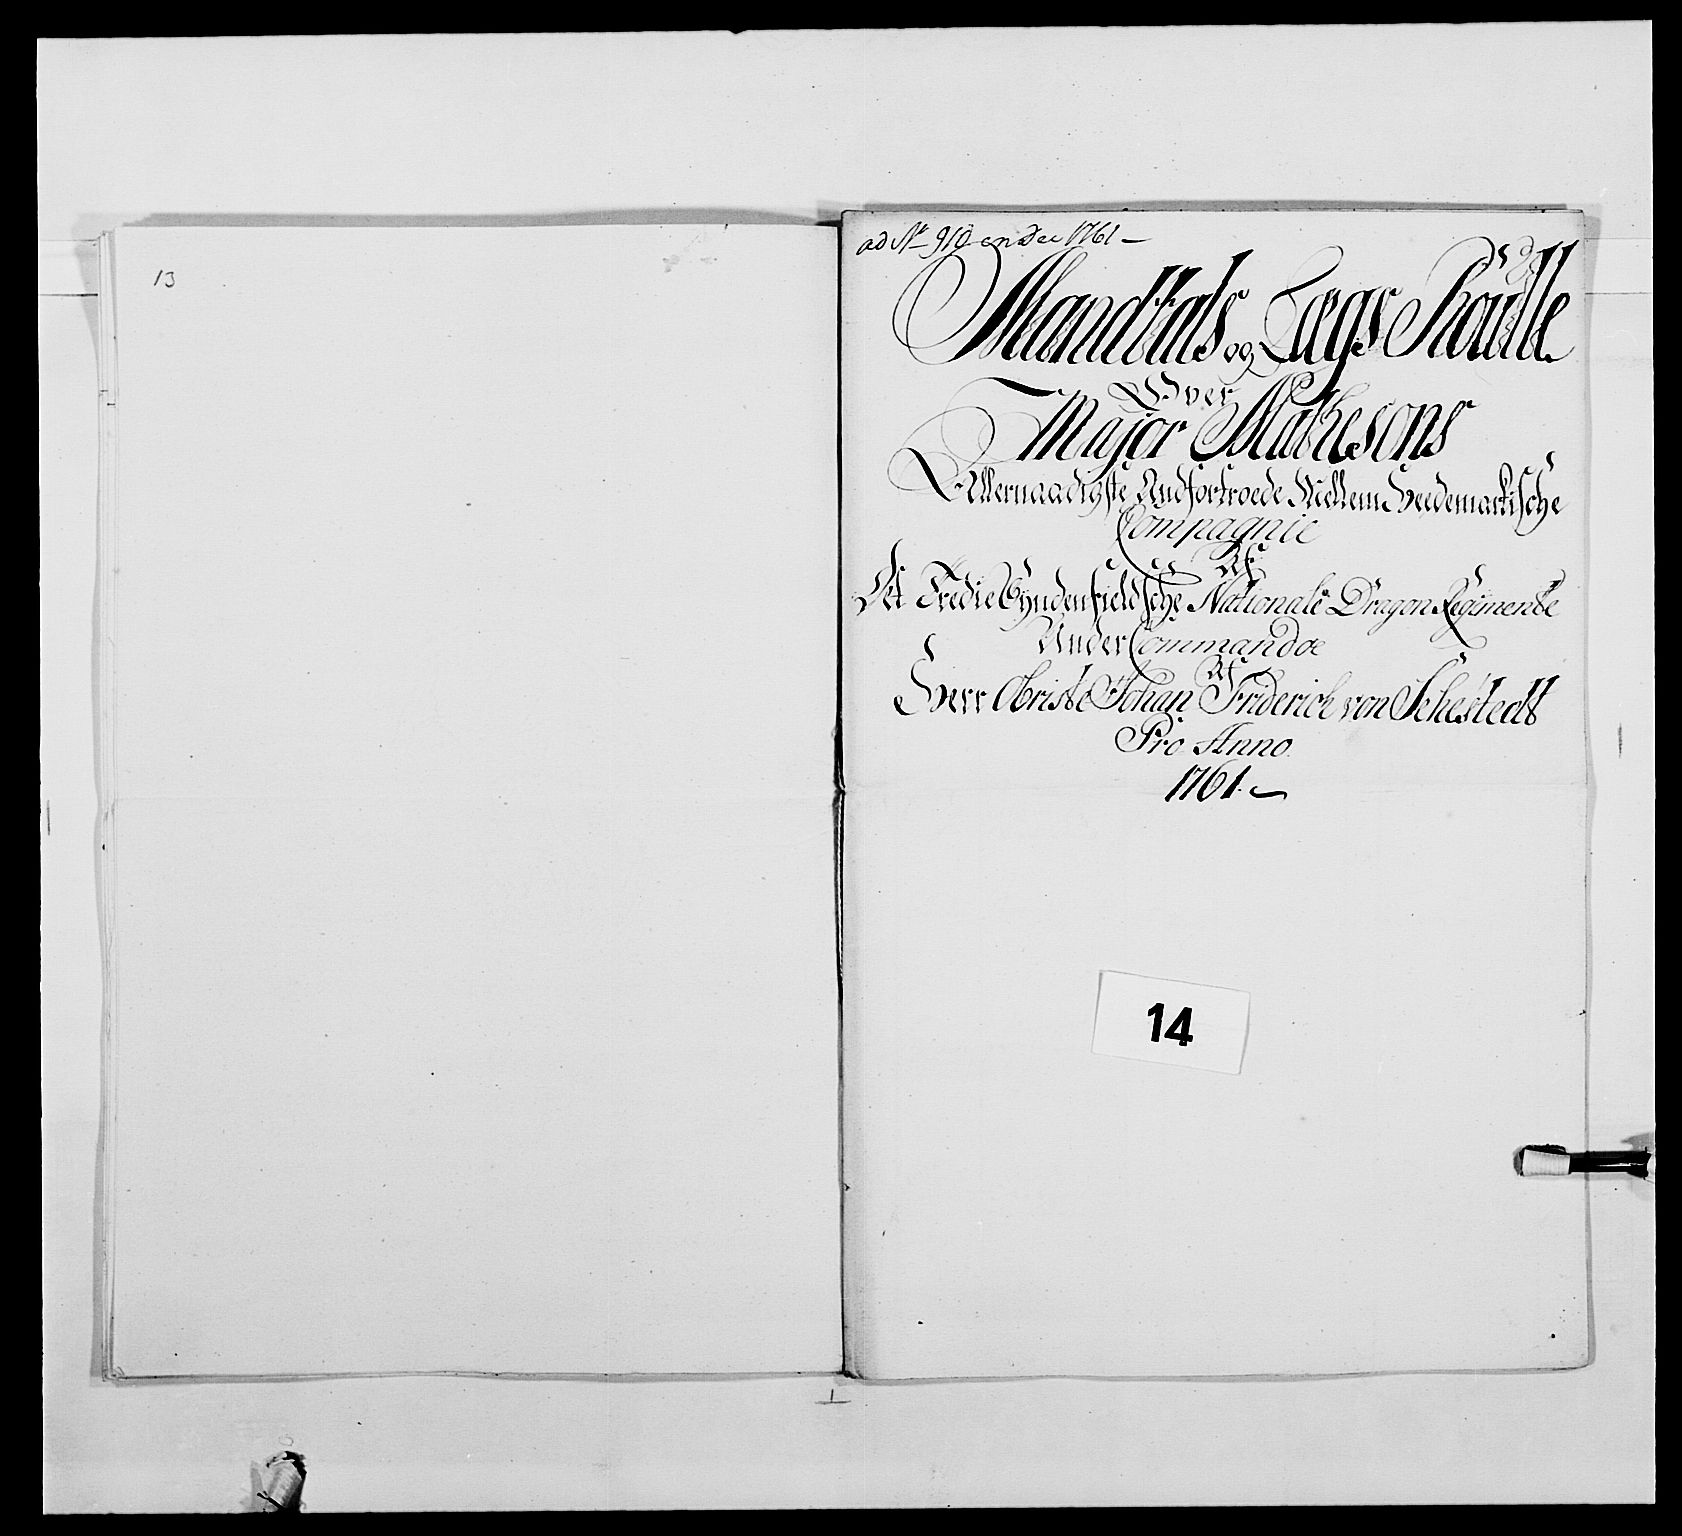 13
ad No 910 en Dec 1761 —
Mandtals og Lægs Roulle
Over
Major Mathesons
Allernaadigste Andfortroede Mellem Heedemarkische
Compagnie
Af
Det Tredie Syndenfieldsche Nationale Dragon Regimente
Under Commandoe
Af
Herr Obriste Johan Friderich von Schestedt
Pro Anno
1761.
14